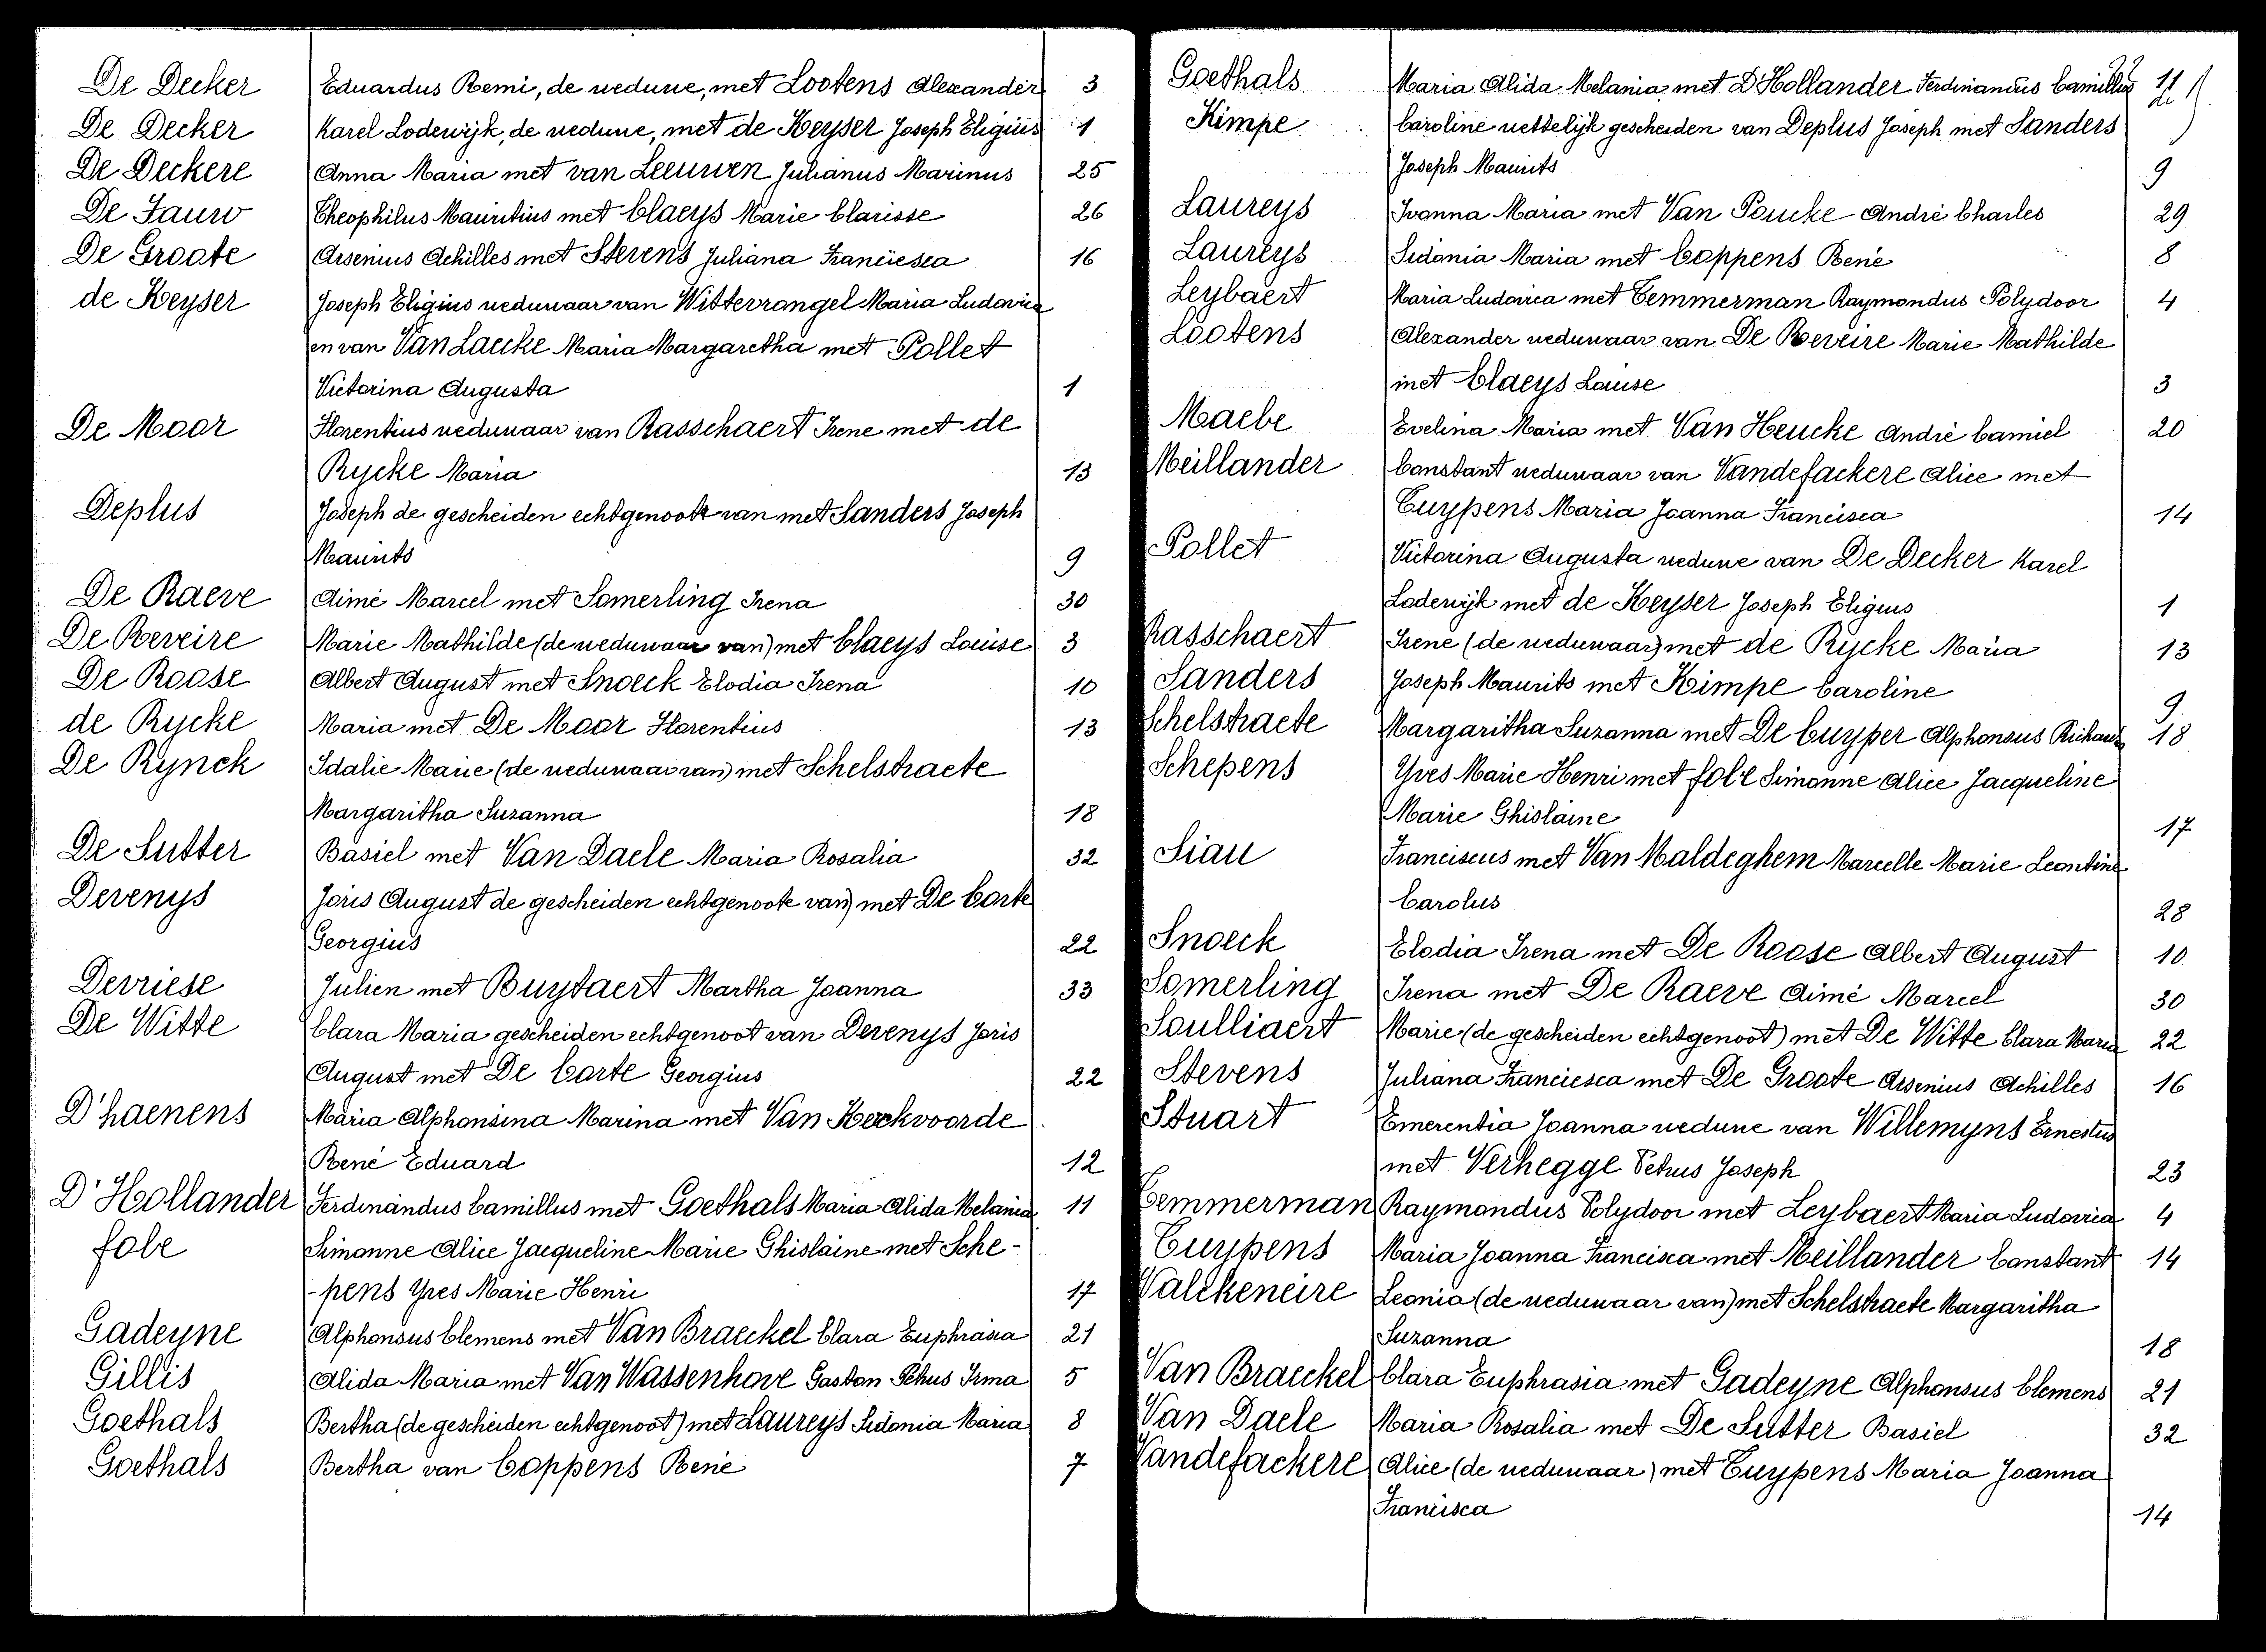 De Decker Eduardus Remi, de weduwe, met Lootens Alexander 3
De Decker Karel Lodewijk, de weduwe, met de Keyser Joseph Eligius 1
De Deckere Anna Maria met van Leeuwen Julianus Marinus 25
De Fauw Theophilus Mauritius met Claeys Marie Clarisse 26
De Groote Arsenius Achilles met Stevens Juliana Franciesca 16
de Keyser Joseph Eligius weduwaar van Witterrongel Maria Ludovica
en van Van Laecke Maria Margaretha met Pollet
Victorina Augusta 1
De Moor Florentius weduwaar van Rasschaert Irene met de
Rycke Maria 13
Deplus Joseph de gescheiden echtgenoote van met Sanders Joseph
Maurits 9
De Raeve Aimé Marcel met Somerling Irena 30
De Reveire Marie Mathilde (de weduwaar van) met Claeys Louise 3
De Roose Albert August met Snoeck Elodia Irena 10
de Rycke Maria met De Moor Florentius 13
De Rynck Idalie Marie (de weduwaar van) met Schelstraete
Margaritha Suzanna 18
De Sutter Basiel met Van Daele Maria Rosalia 32
Devenys Joris August de gescheiden echtgenoote van) met De Corte
Georgius 22
Devriese Julien met Buytaert Martha Joanna 33
De Witte Clara Maria gescheiden echtgenoot van Devenys Joris
August met De Corte Georgius 22
D'haenens Maria Alphonsina Marina met Van Kerckvoorde
René Eduard 12
D'Hollander Ferdinandus Camillus met Goethals Maria Alida Melania 11
fobe Simonne Alice Jacqueline Marie Ghislaine met Sche-
-pens Yves Marie Henri 17
Gadeyne Alphonsus Clemens met Van Braeckel Clara Euphrasia 21
Gillis Alida Maria met Van Wassenhove Gaston Petrus Irma 5
Goethals Bertha (de gescheiden echtgenoot) met Laureys Sidonia Maria 8
Goethals Bertha van Coppens René 7
Goethals Maria Alida Melania met D'Hollander Ferdinandus Camillus 11
Kimpe Caroline wettelijk gescheiden van Deplus Joseph met Sanders
Joseph Maurits 9
Laureys Ivonna Maria met Van Poucke André Charles 29
Laureys Sidonia Maria met Coppens René 8
Leybaert Maria Ludovica met Temmerman Raymondus Polydoor 4
Lootens Alexander weduwaar van De Reveire Marie Mathilde
met Claeys Louise 3
Maebe Evelina Maria met Van Heucke André Camiel 20
Meillander Constant weduwaar van Vandefackere Alice met
Tuypens Maria Joanna Francisca 14
Pollet Victorina Augusta weduwe van De Decker Karel
Lodewijk met de Keyser Joseph Eligius 1
Rasschaert Irene (de weduwaar) met de Rycke Maria 13
Sanders Joseph Maurits met Kimpe Caroline 9
Schelstraete Margaritha Suzanna met De Cuyper Alphonsus Richardus 18
Schepens Yves Marie Henri met fobe Simonne Alice Jacqueline
Marie Ghislaine 17
Siau Franciscus met Van Maldeghem Marcelle Marie Leontine
Carolus 28
Snoeck Elodia Irena met De Roose Albert August 10
Somerling Irena met De Raeve Aimé Marcel 30
Soulliaert Marie (de gescheiden echtgenoot) met De Witte Clara Maria 22
Stevens Juliana Franciesca met De Groote Arsenius Achilles 16
Stuart Emerentia Joanna weduwe van Willemyns Ernestus
met Verhegge Petrus Joseph 23
Temmerman Raymondus Polydoor met Leybaert Maria Ludovica 4
Tuypens Maria Joanna Francisca met Meillander Constant 14
Valckeneire Leonia (de weduwaar van) met Schelstraete Margaritha
Suzanna 18
Van Braeckel Clara Euphrasia met Gadeyne Alphonsus Clemens 21
Van Daele Maria Rosalia met De Sutter Basiel 32
Vandefackere Alice (de weduwaar) met Tuypens Maria Joanna
Francisca 14